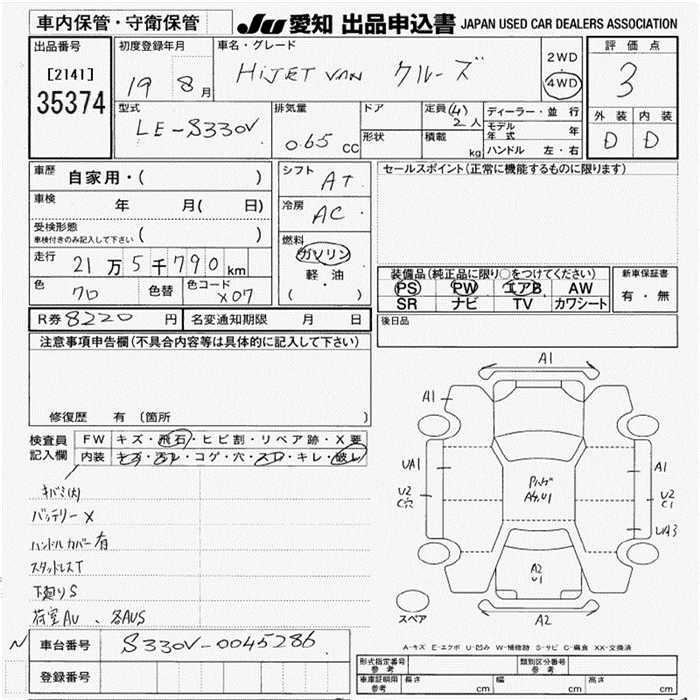 車内保管・守衛保管 JU 愛知 出品申込書 JAPAN USED CAR DEALERS ASSOCIATION
出品番号 初度登録年月 車名・グレード 評価点
[2141] 19 8月 HIJET VAN クルーズ 2WD 3
35374 4WD
型式 排気量 ドア 定員 (4) ディーラー・並行 外装 内装
LE-S330V 0.65 CC 2人 モデル年式 年 D D
形状 積載 kg ハンドル 左・右
車歴 自家用・( ) シフト AT セールスポイント(正常に機能するものに限ります)
車検 年 月( 日) 冷房 AC
受検形態 ( )
車検付きのみ記入して下さい
燃料
走行 21万5千790km ガソリン
軽・油
( )
装備品(純正品に限り○をつけてください) 新車保証書
色 クロ 色替 色コード X07 PS PW エアB AW 有・無
SR ナビ TV カワシート
R券 8220円 名変通知期限 月 日 後日品
注意事項申告欄(不具合内容等は具体的に記入して下さい)
修復歴 有(箇所
検査員 FW キズ・飛石・ヒビ割・リペア跡・X要
記入欄 内装 キズ・汚レ・コゲ・穴・スレ・キレ・破レ
キバミ(内)
バッテリーX
ハンドルカバー有
スタッドレスT
下廻りS
荷室AU、各AUS
A1
A1
UA1 A1
U2 C穴 Pハゲ A4,U1 U2 C1
UA3
A2 U1
スペア A2
A-キズ E-エクボ U-凹み W-補修跡 S-サビ C-腐食 XX-交換済
N 車台番号 S330V-0045286
登録番号
形式指定番号 参考 類別区分番号 参考
車庫証明用 参考 長さ cm 幅 cm 高さ cm